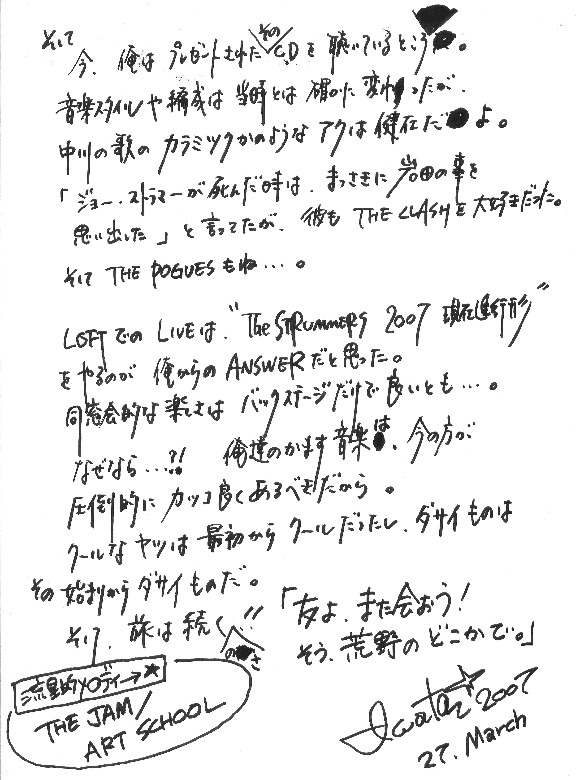 そして
今、俺はプレゼントされたそのCDを聴いているところ。
音楽スタイルや編成は当時とは確かに変わったが、
中川の歌のカラミツクかのようなアクは健在だよ。
「ジョー・ストラマーが死んだ時は、まっさきに岩田の事を
思い出した」と言ってたが、彼も THE CLASHを大好きだった。
そして THE POGUESもね…。
LOFTでの LIVEは、“The STRUMMERS 2007 現在進行形”
をやるのが俺からの ANSWERだと思った。
同窓会的な楽しさは バックステージだけで良いとも…。
なぜなら…?! 俺達のかます音楽は、今の方が
圧倒的に カッコ良くあるべきだから。
クールなヤツは最初から クールだったし、ダサイものは
その始まりから ダサイものだ。
そして、旅は続くのさ!!
「友よ、また会おう!
そう、荒野の どこかで。」
流星的メロディー→★
THE JAM/
ART SCHOOL
Iwata☆2007
27. March